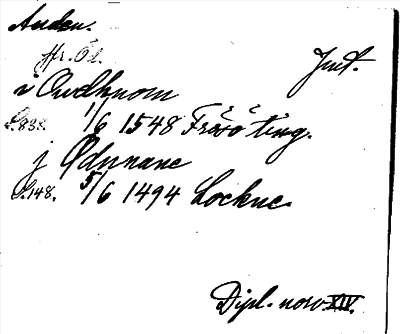 Anden.
Hr. Öd.
Jmt.
i Ovdhnom
S.838. 1/6 1548 Frösö ting.
j Odunane
S.148. 5/6 1494 Lockne.
Dipl. norv. XIV.